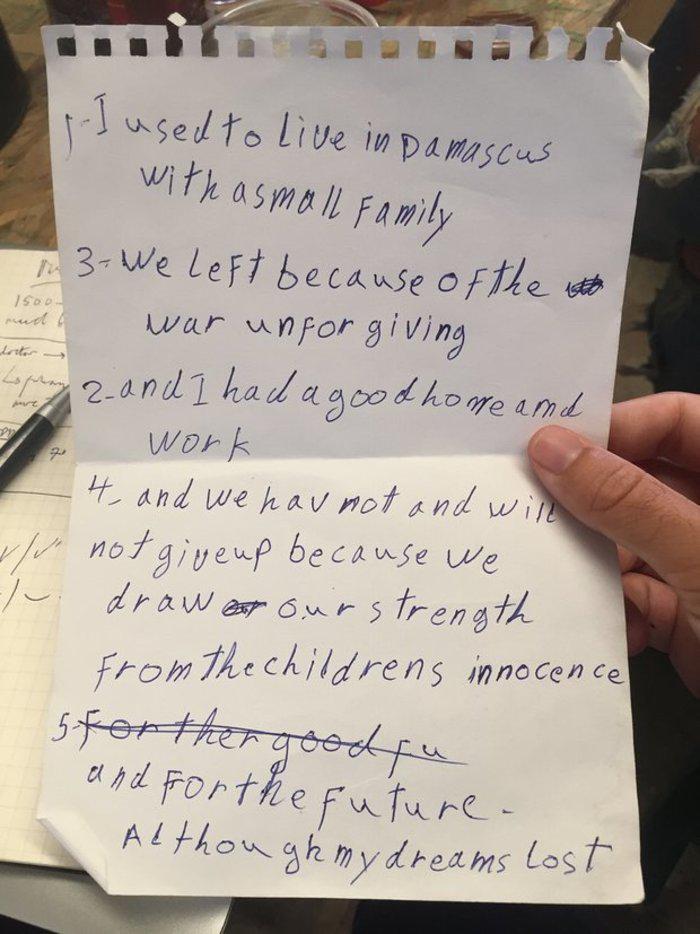 1- I used to live in Damascus
with a small Family
3- we left because of the
war unforgiving
2- and I had a good home amd
work
4- and we hav not and will
not give up because we
draw our strength
From the childrens innocence
5- For ther good fu
and For the Future.
Although my dreams lost
1500-
doctor →